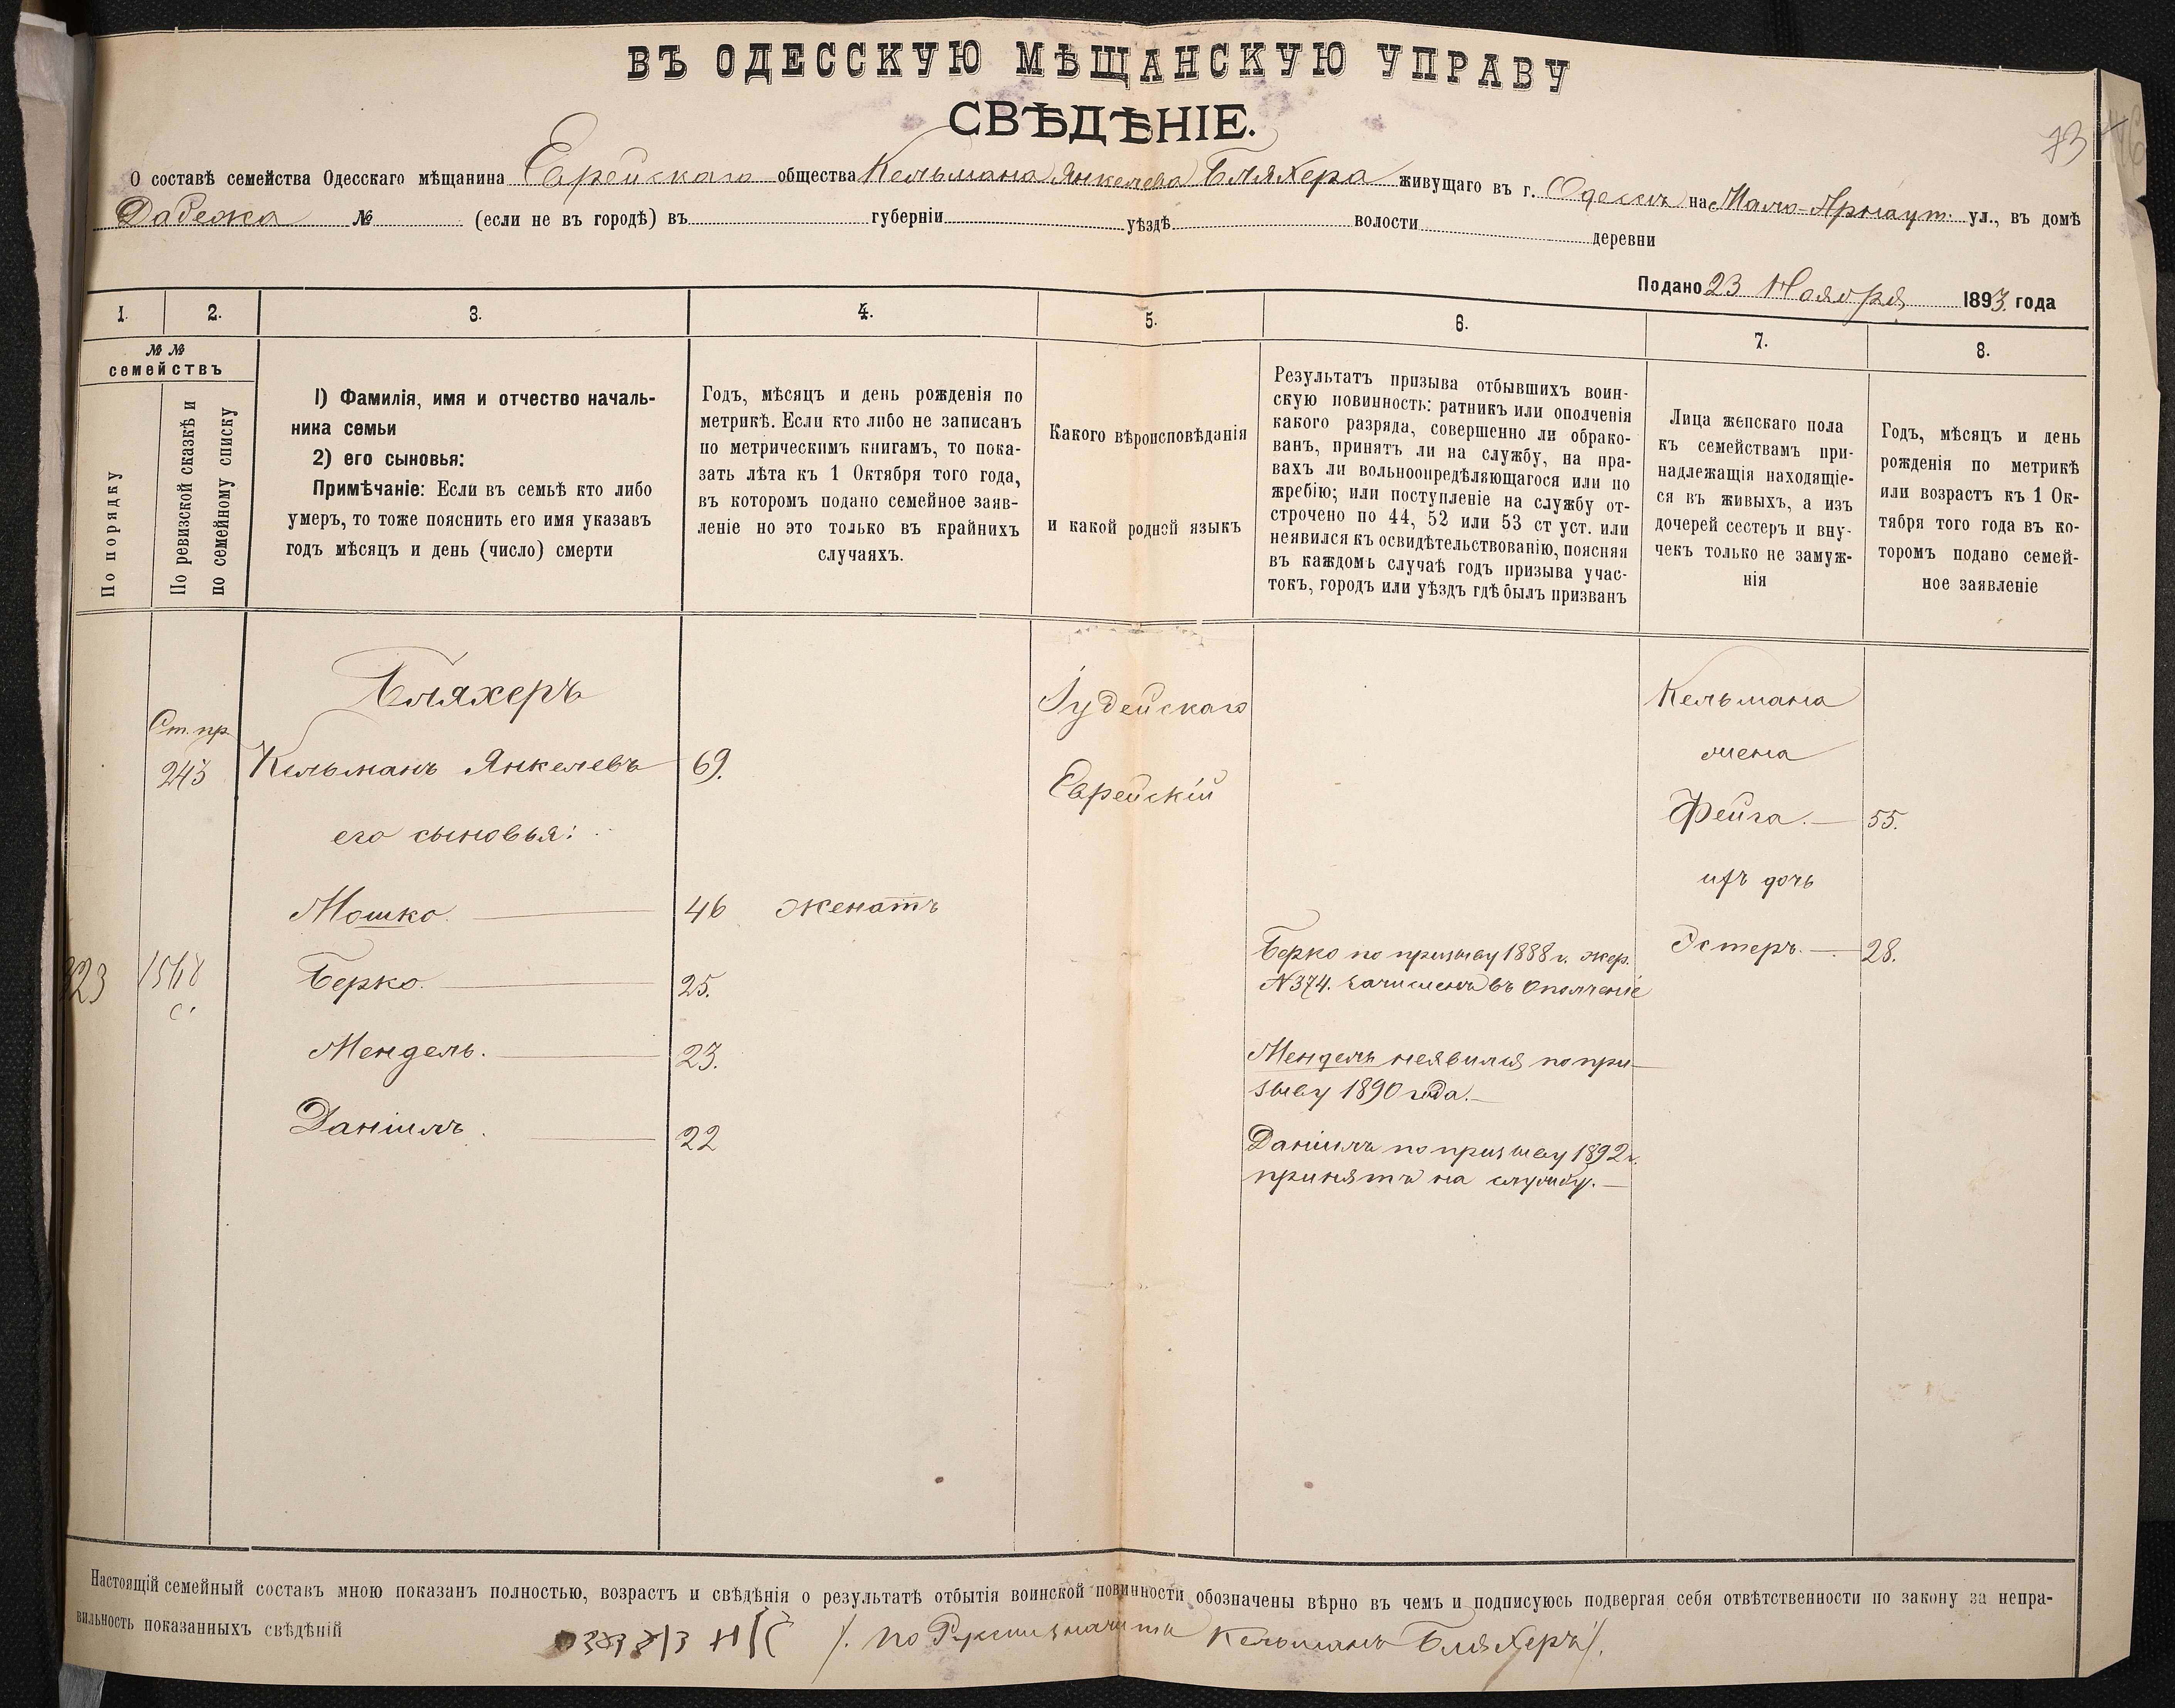 ВЪ ОДЕССКУЮ МѢЩАНСКУЮ УПРАВУ
СВѢДѢНІЕ.
73
О составѣ семейства Одесскаго мѣщанина Еврейскаго общества Кельмана Янкелева Бляхера живущаго въ г. Одессѣ на Мало-Арнаут. ул., въ домѣ
№ (если не въ городѣ) въ губерніи уѣздѣ волости деревни
Подано 23 Ноября 1893 года
1. 2. 3. 4. 5. 6. 7. 8.
№ № семействъ
По порядку
По ревизской сказкѣ и
по семейному списку
1) Фамилія, имя и отчество началь-
ника семьи
2) его сыновья:
Примѣчаніе: Если въ семьѣ кто либо
умеръ, то тоже пояснить его имя указавъ
годъ мѣсяцъ и день (число) смерти
Годъ, мѣсяцъ и день рожденія по
метрикѣ. Если кто либо не записанъ
по метрическимъ книгамъ, то пока-
зать лѣта къ 1 Октября того года,
въ которомъ подано семейное заяв-
леніе но это только въ крайнихъ
случаяхъ.
Какого вѣроисповѣданія
и какой родной языкъ
Результатъ призыва отбывшихъ воин-
скую повинность: ратникъ или ополченія
какого разряда, совершенно ли обрако-
ванъ, принятъ ли на службу, на пра-
вахъ ли вольноопредѣляющагося или по
жребію; или поступленіе на службу от-
строчено по 44, 52 или 53 ст уст. или
неявился къ освидѣтельствованію, поясняя
въ каждомъ случаѣ годъ призыва учас-
токъ, городъ или уѣздъ гдѣ былъ призванъ
Лица женскаго пола
къ семействамъ при-
надлежащія находящіе-
ся въ живыхъ, а изъ
дочерей сестеръ и вну-
чекъ только не замуж-
нія
Годъ, мѣсяцъ и день
рожденія по метрикѣ
или возрастъ къ 1 Ок-
тября того года въ ко-
торомъ подано семей-
ное заявленіе
Бляхеръ
Іудейскаго
Кельмана
Ст. пр
243 Кельманъ Янкелевъ 69.
жена
Еврейскій
Фейга. 55.
его сыновья:
ихъ дочь
Мошко. 46 женатъ
Эстеръ. 28.
323 1568 с. Берко. 25.
Берко по призыву 1888 г. жер.
№374. зачисленъ въ ополченіе
Мендель. 23.
Мендель неявился по при-
зыву 1890 года.
Даніилъ. 22
Даніилъ по призыву 1892 г.
принятъ на службу.
Настоящій семейный составъ мною показанъ полностью, возрастъ и свѣдѣнія о результатѣ отбытія воинской повинности обозначены вѣрно въ чемъ и подписуюсь подвергая себя отвѣтственности по закону за непра-
вильность показанныхъ свѣдѣній
Кельманъ Бляхеръ